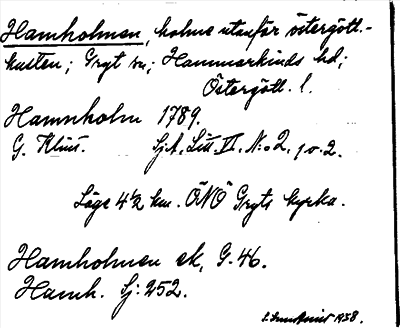 Hamholmen, holme utanför östergött.-
kusten; Gryt sn; Hammarkinds hd;
Östergötl. l.
Hamnholm 1789.
G. Klint. Sj.A. Litt VI. N:o 2. 1 o. 2.
Läge 4½ km. ÖNÖ Gryts kyrka.
Hamholmen ek, G. 46.
Hamh. Sj: 252.
1938.